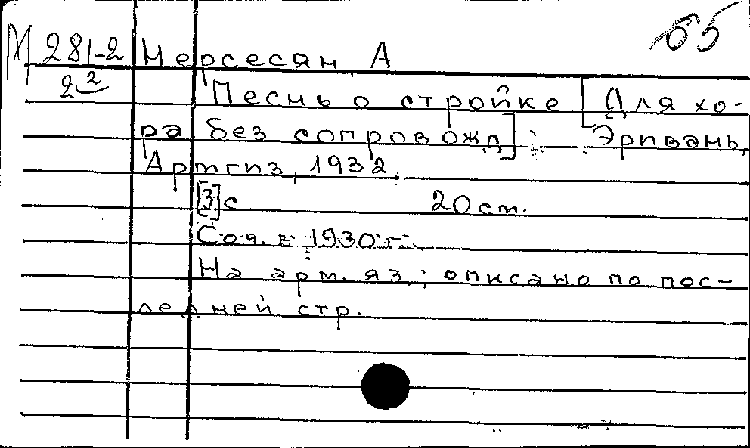 М 281-2 Нерсесян А 55
2²
Песнь о стройке [Для хо-
ра без сопровожд] : Эривань,
Армгиз, 1932.
[3] с 20 см.
Соч. в 1930 г.
На арм. яз.; описано по пос-
ледней стр.